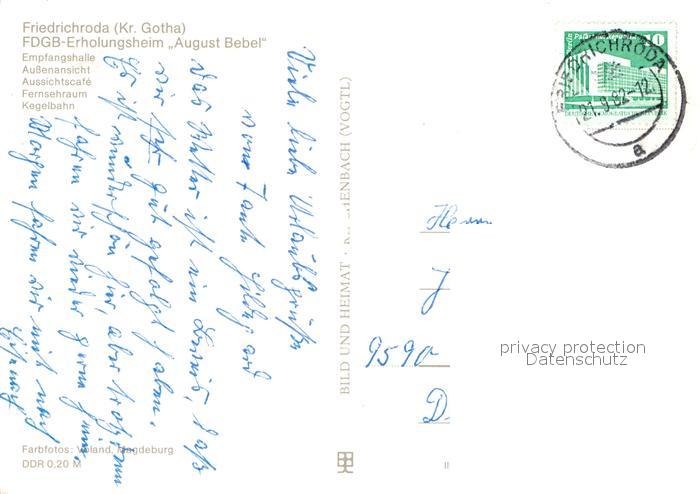 Friedrichroda (Kr. Gotha)
FDGB-Erholungsheim „August Bebel"
Empfangshalle
Außenansicht
Aussichtscafé
Fernsehraum
Kegelbahn
Viele liebe Urlaubsgrüße
von Tante Hilde und
Das Wetter ist ein Beweis, daß
wir gut gefolgt haben.
Es ist wunderschön hier, aber trotzdem
fahren wir wieder gerne heim.
Morgen fahren wir mit nach
Eisenach
BILD UND HEIMAT · (VOGTL)
FRIEDRICHRODA
21.9.82-12
a
DEUTSCHE DEMOKRATISCHE REPUBLIK
10
Herrn
J
9590
D
privacy protection
Datenschutz
Farbfotos: Voland, Magdeburg
DDR 0,20 M